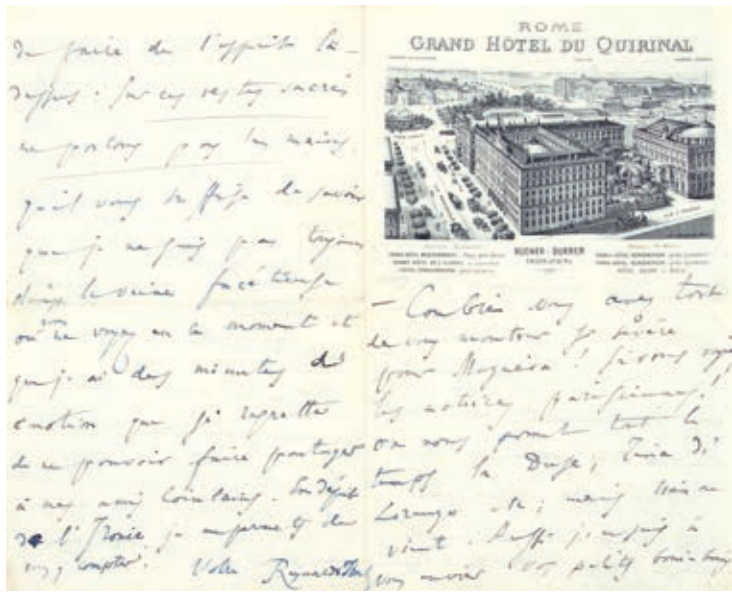 de faire de l'esprit là-
dessus : sur ces restes sacrés
ne portons pas les mains.
qu'il vous suffise de savoir
que je ne suis pas toujours
dans la veine facétieuse
où vous me voyez en ce moment et
que j'ai des minutes d'
émotion que je regrette
de ne pouvoir faire partager
à mes amis lointains. En dépit
de l'Ironie je me permets de
vous y compter. Votre Reynaldo Hahn
ROME
GRAND HÔTEL DU QUIRINAL
BUCHER-DURRER
— Combien vous avez tort
de vous montrer si sévère
pour Mogueira ! Si vous voyiez
les actrices parisiennes !
On nous promet tout le
temps la Duse, Tina di
Lorenzo etc; mais rien ne
vient. Puissé-je
vous envoyer vos petits